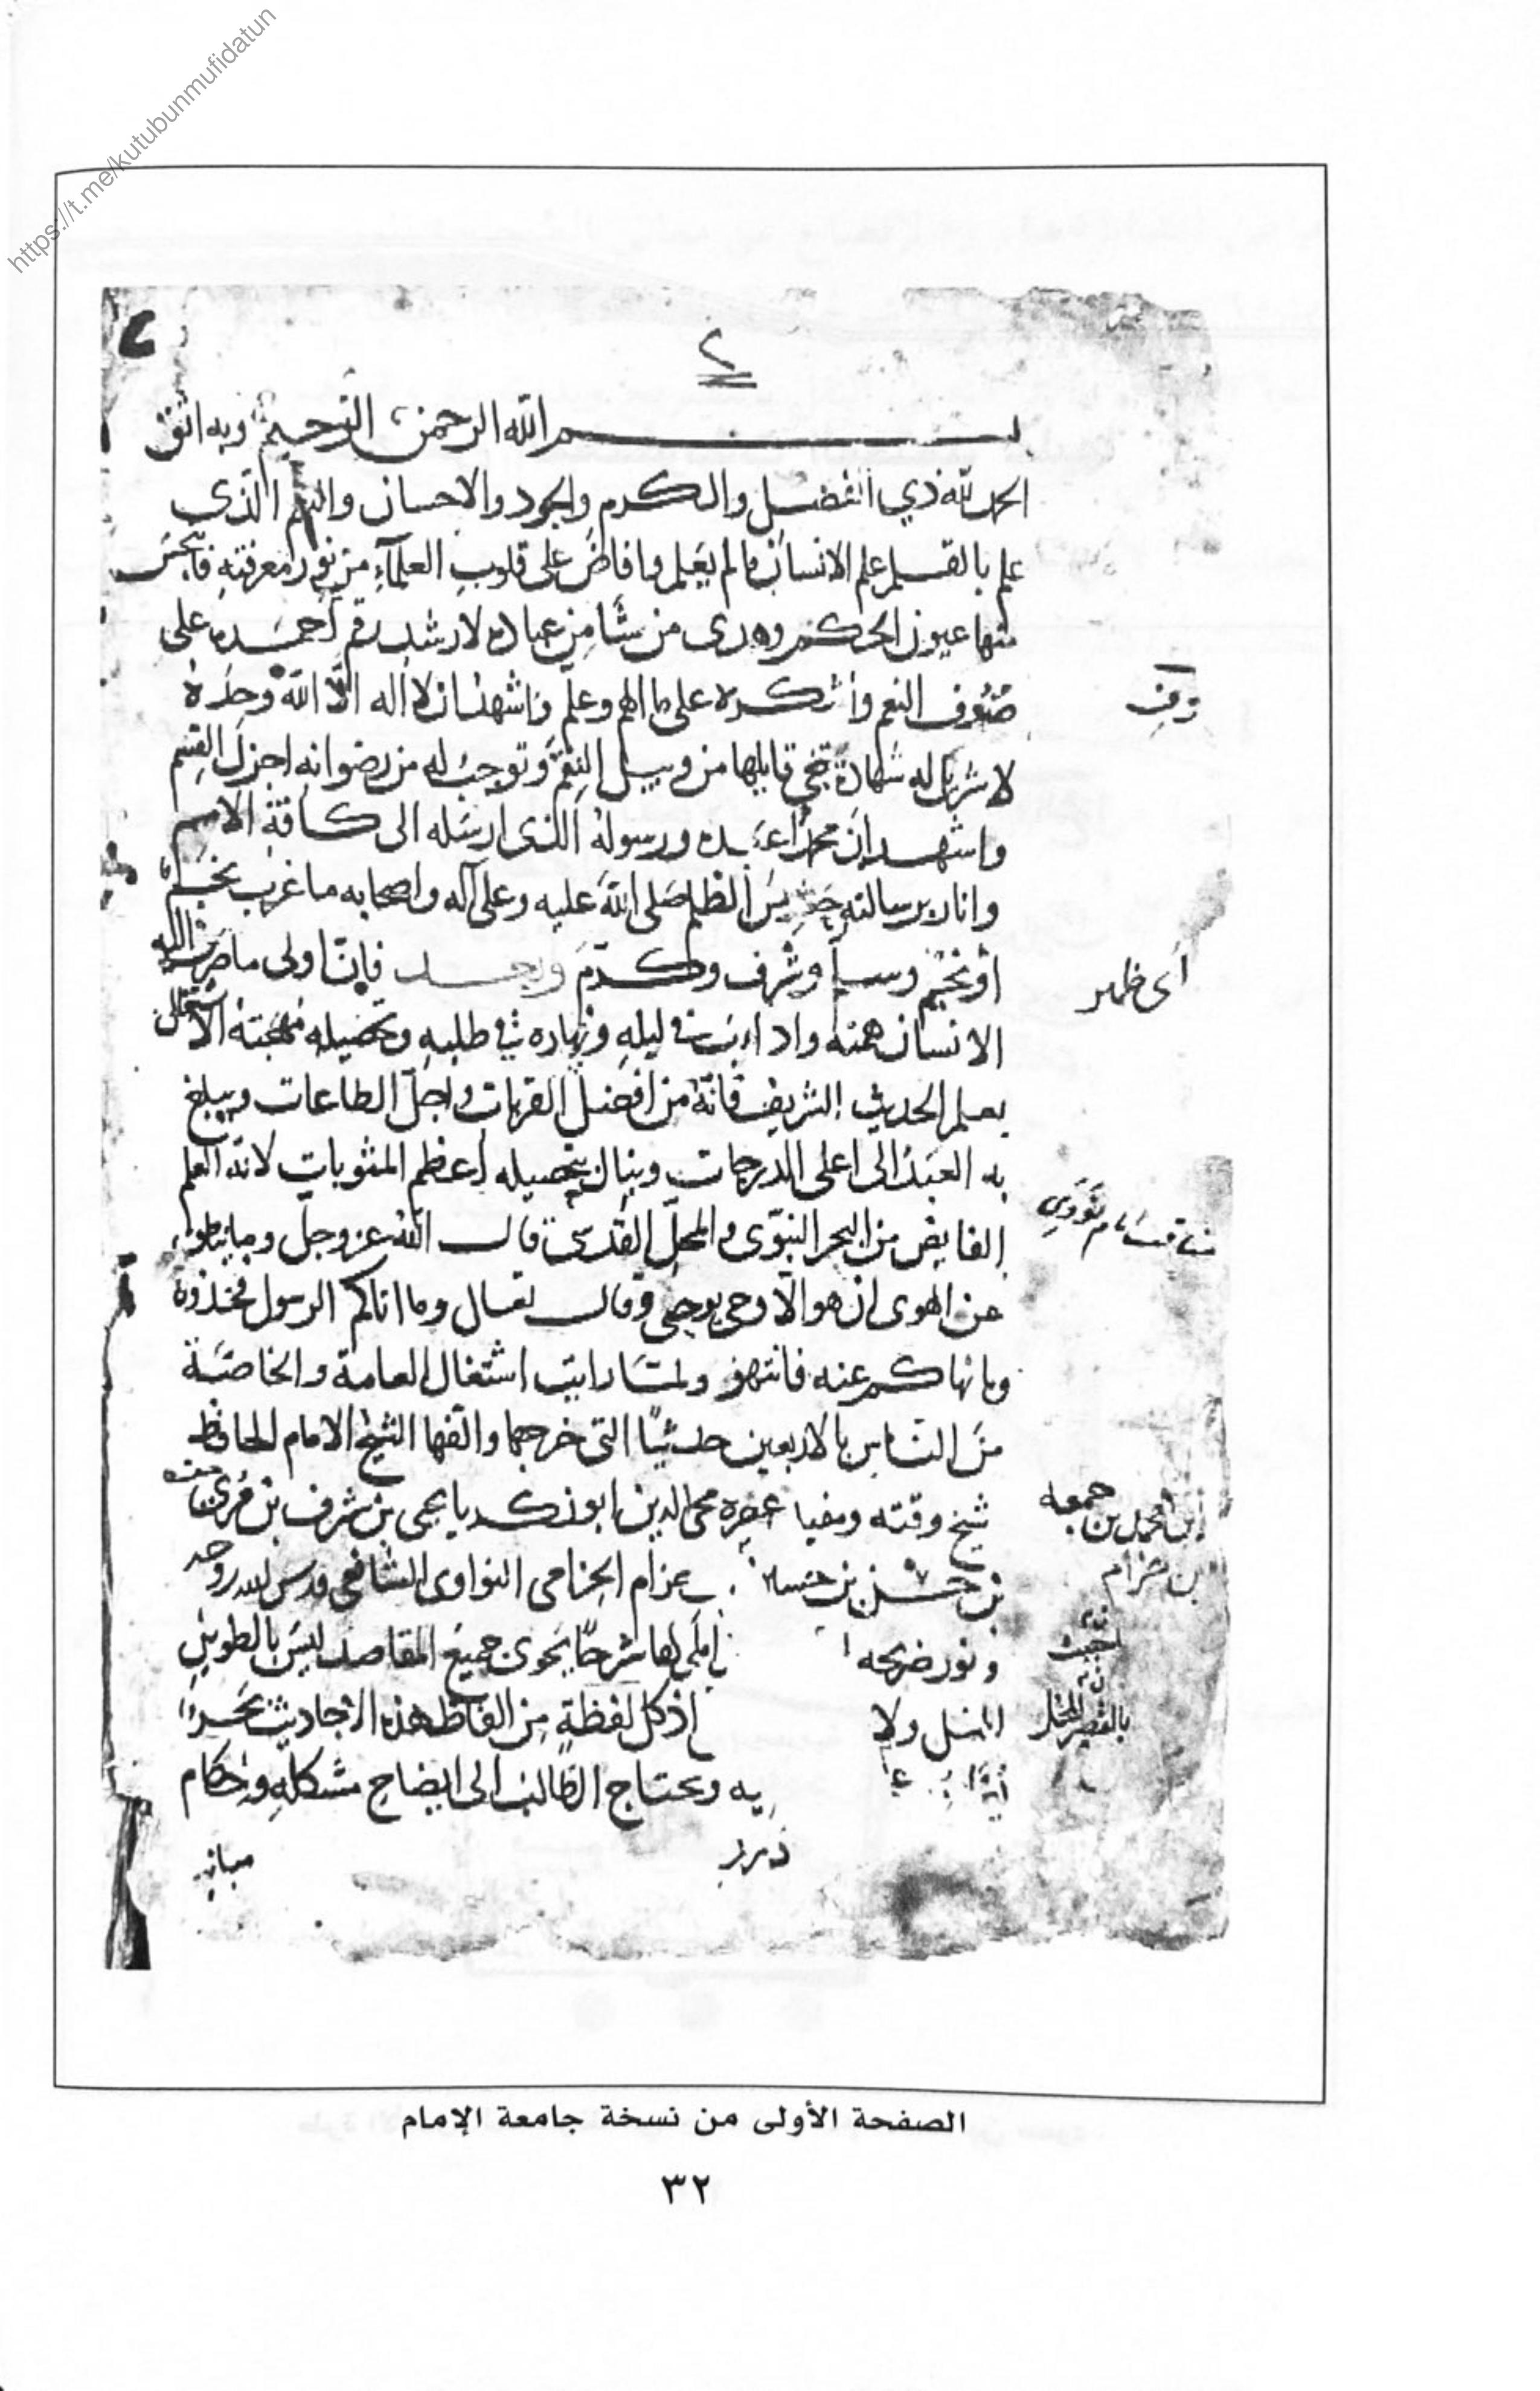 https://t.me/kutubunmufidatun
٢
٢
بسم الله الرحمن الرحيم وبه اثق
الحمد لله ذي الفضل والكرم والجود والاحسان والنعم الذي
علم بالقلم علم الانسان ما لم يعلم وافاض على قلوب العلمآء من نور معرفته فانبجس
منها عيون الحكم وهدى من شا من عباده لارشد احمده على
صنوف النعم واشكره على ما الهم وعلم واشهد ان لا اله الا الله وحده
لا شريك له شهادة تنجي قايلها من وبيل النقم وتوجب له من رضوانه اجزل القسم
واشهد ان محمدا عبده ورسوله الذي ارسله الى كافة الامم
وانار برسالته الظلم صلى الله عليه وعلى آله واصحابه ما غرب نجم
او نجم وسلم وشرف وكرم وبعد فان اولى ما صرف اليه
أى ظهر
الانسان همته واداب في ليله ونهاره في طلبه وتحصيله مهجته الاشتغال
بعلم الحديث الشريف فانه من افضل القربات واجل الطاعات ويبلغ
به العبد الى اعلى الدرجات وينال بتحصيله اعظم المثوبات لانه العلم
الفايض من البحر النبوى والمحل القدسى قال الله عز وجل وما ينطق
عن الهوى ان هو الا وحى يوحى وقال تعالى وما اتاكم الرسول فخذوه
وما نهاكم عنه فانتهو ولما رايت اشتغال العامة والخاصة
من الناس بالاربعين حديثا التى خرجها والفها الشيخ الامام الحافظ
شيخ وقته ومفيا عصره محى الدين ابو زكريا يحيى بن شرف بن مرى
ابن محمد بن جمعه
بن حزام
بن حسن بن حسين حزام الحزامى النواوى الشافعى قدس الله روحه
ونور ضريحه املى لها شرحا يحوى جميع المقاصد ليس بالطويل
احببت ان
الممل ولا اذ كل لفظة من الفاظ هذه الاحاديث بحر
بالقصير المخل
ويحتاج الطالب الى ايضاح مشكله واحكام
مبانى
الصفحة الأولى من نسخة جامعة الإمام
٣٢